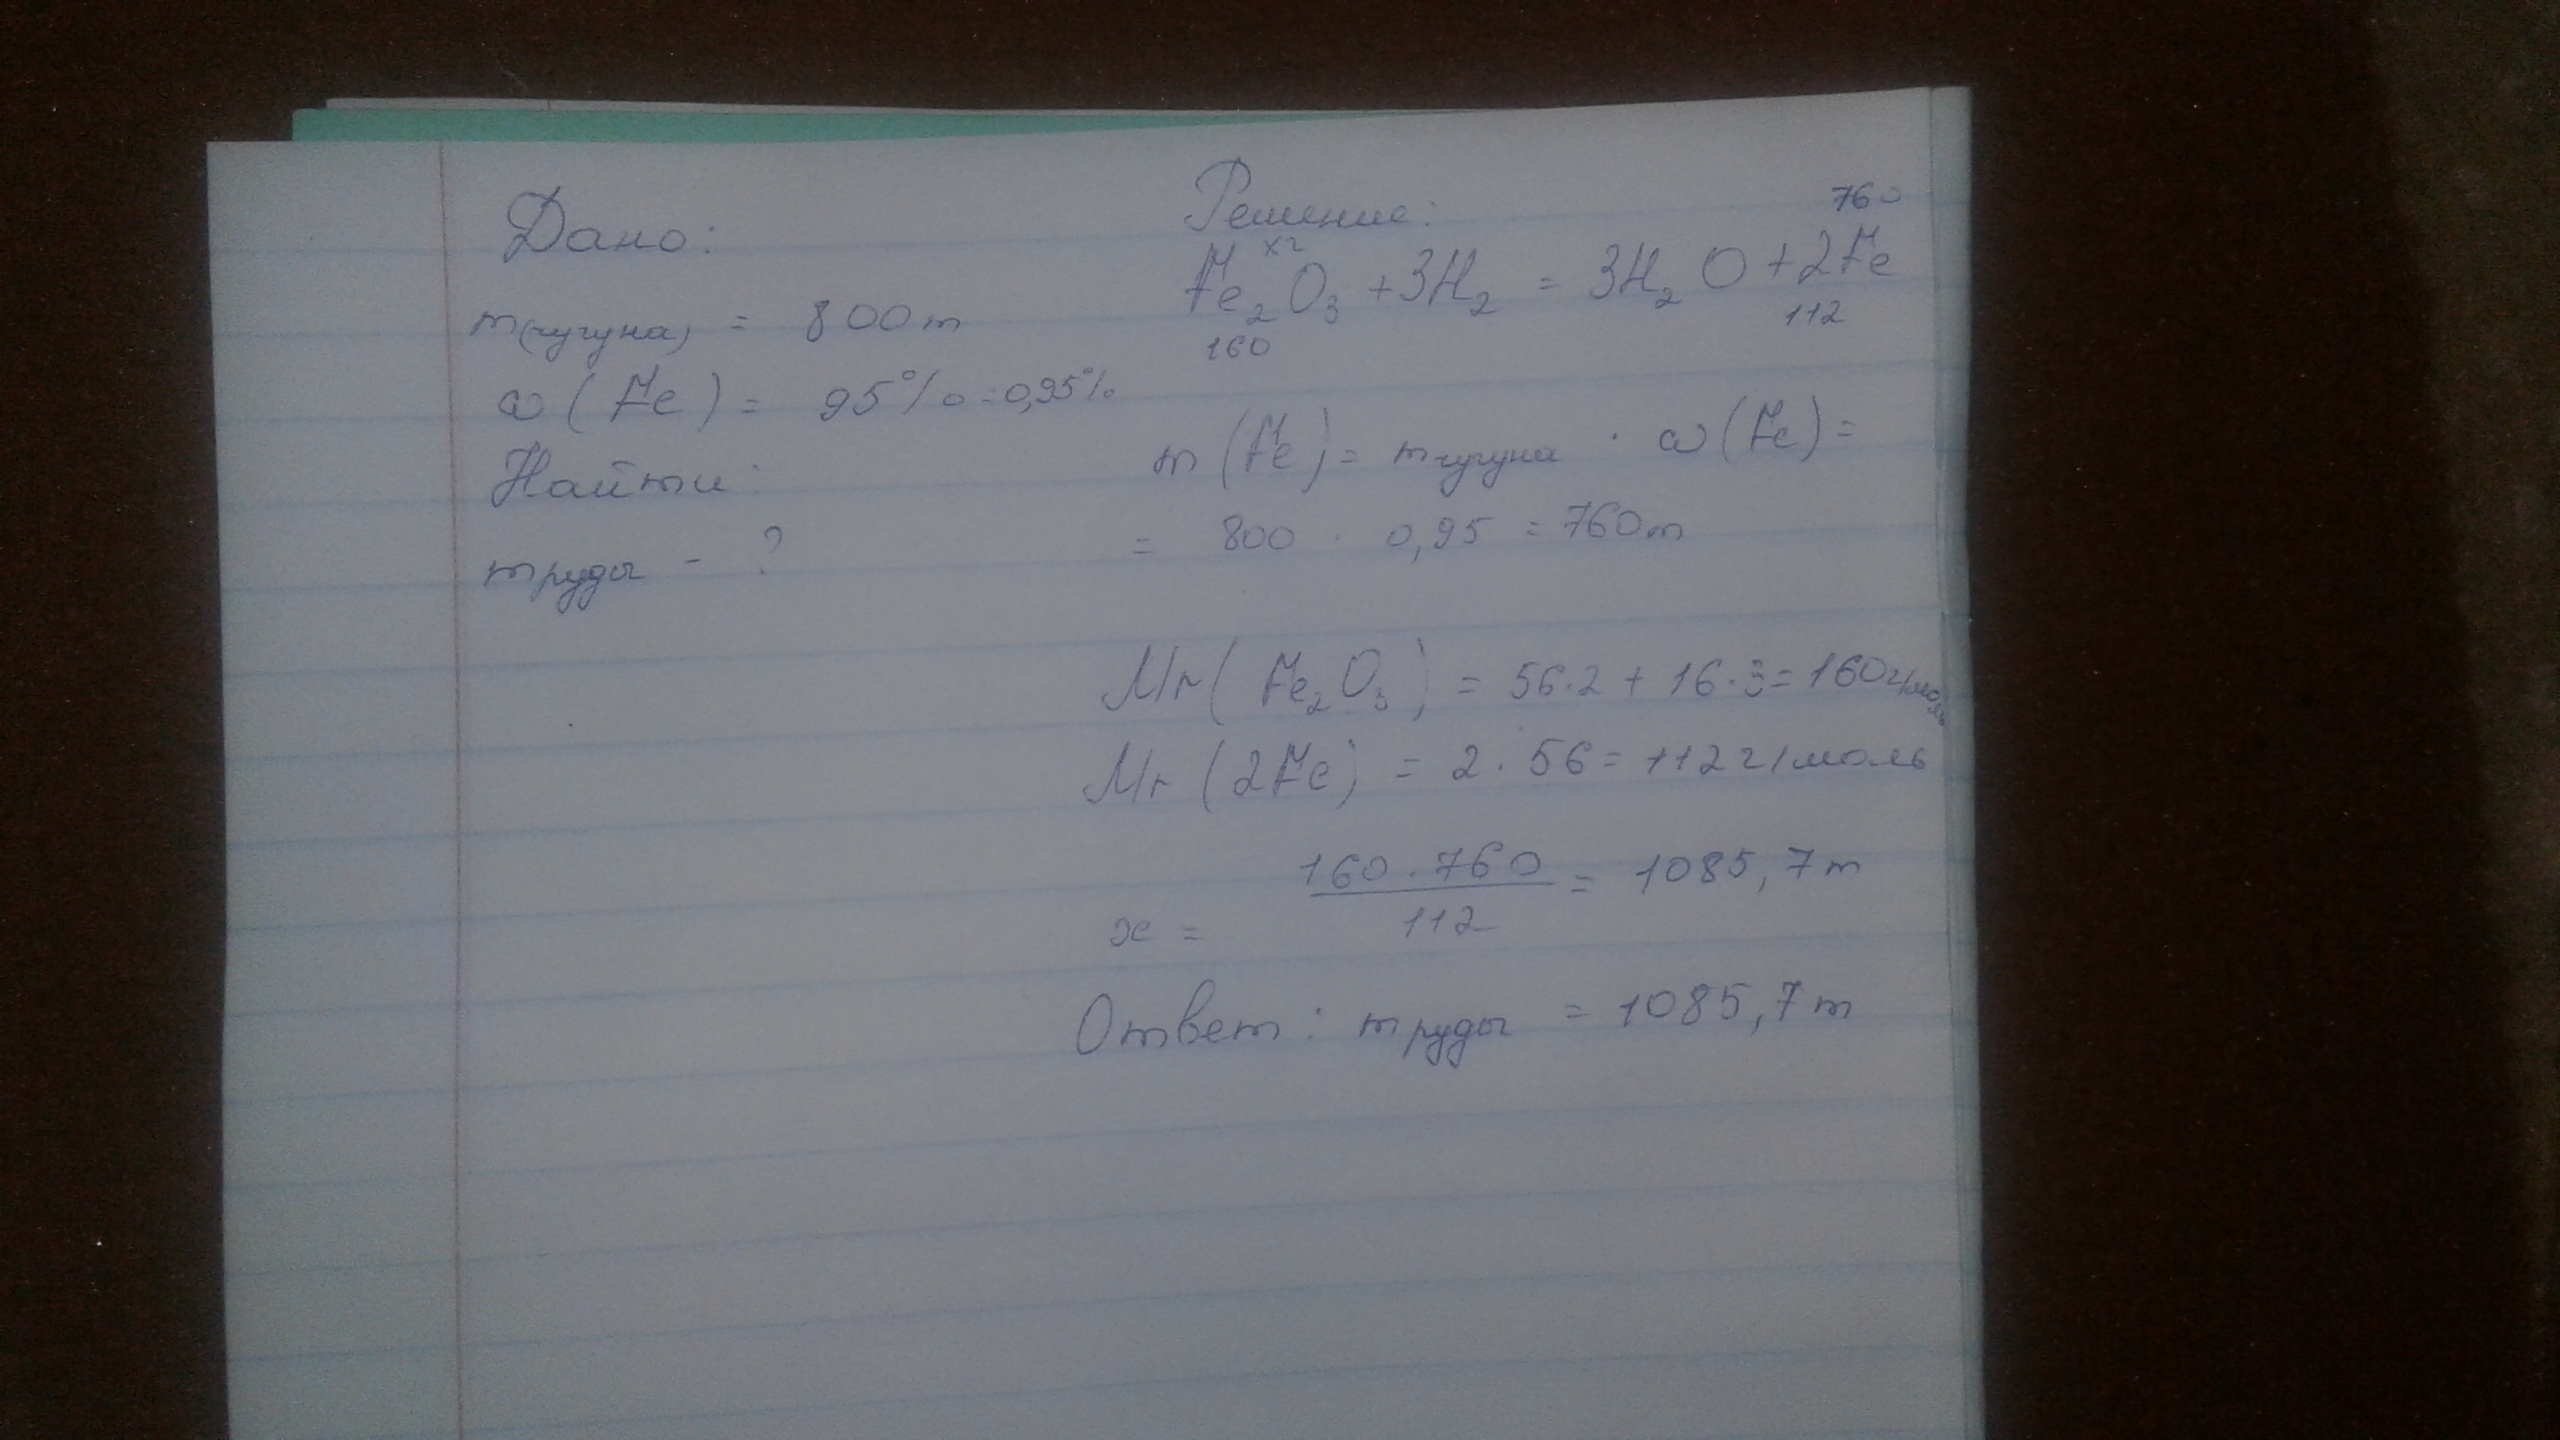 Дано:
m(чугуна) = 800 т
ω (Fe) = 95% = 0,95%
Найти:
m руды - ?
Решение:
xг 760
Fe₂O₃ + 3H₂ = 3H₂O + 2Fe
160 112
m (Fe) = m чугуна · ω (Fe) =
= 800 · 0,95 = 760 т
Mr ( Fe₂O₃ ) = 56·2 + 16·3 = 160 г/моль
Mr (2Fe) = 2 · 56 = 112 г/моль
x = 160 · 760 / 112 = 1085,7 т
Ответ: m руды = 1085,7 т